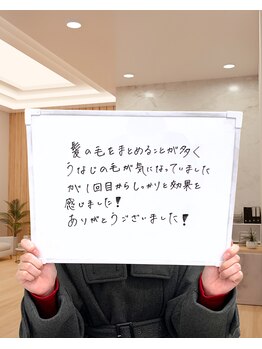 髪の毛をまとめることが多く
うなじの毛が気になっていました
が1回目からしっかりと効果を
感じました!
ありがとうございました!